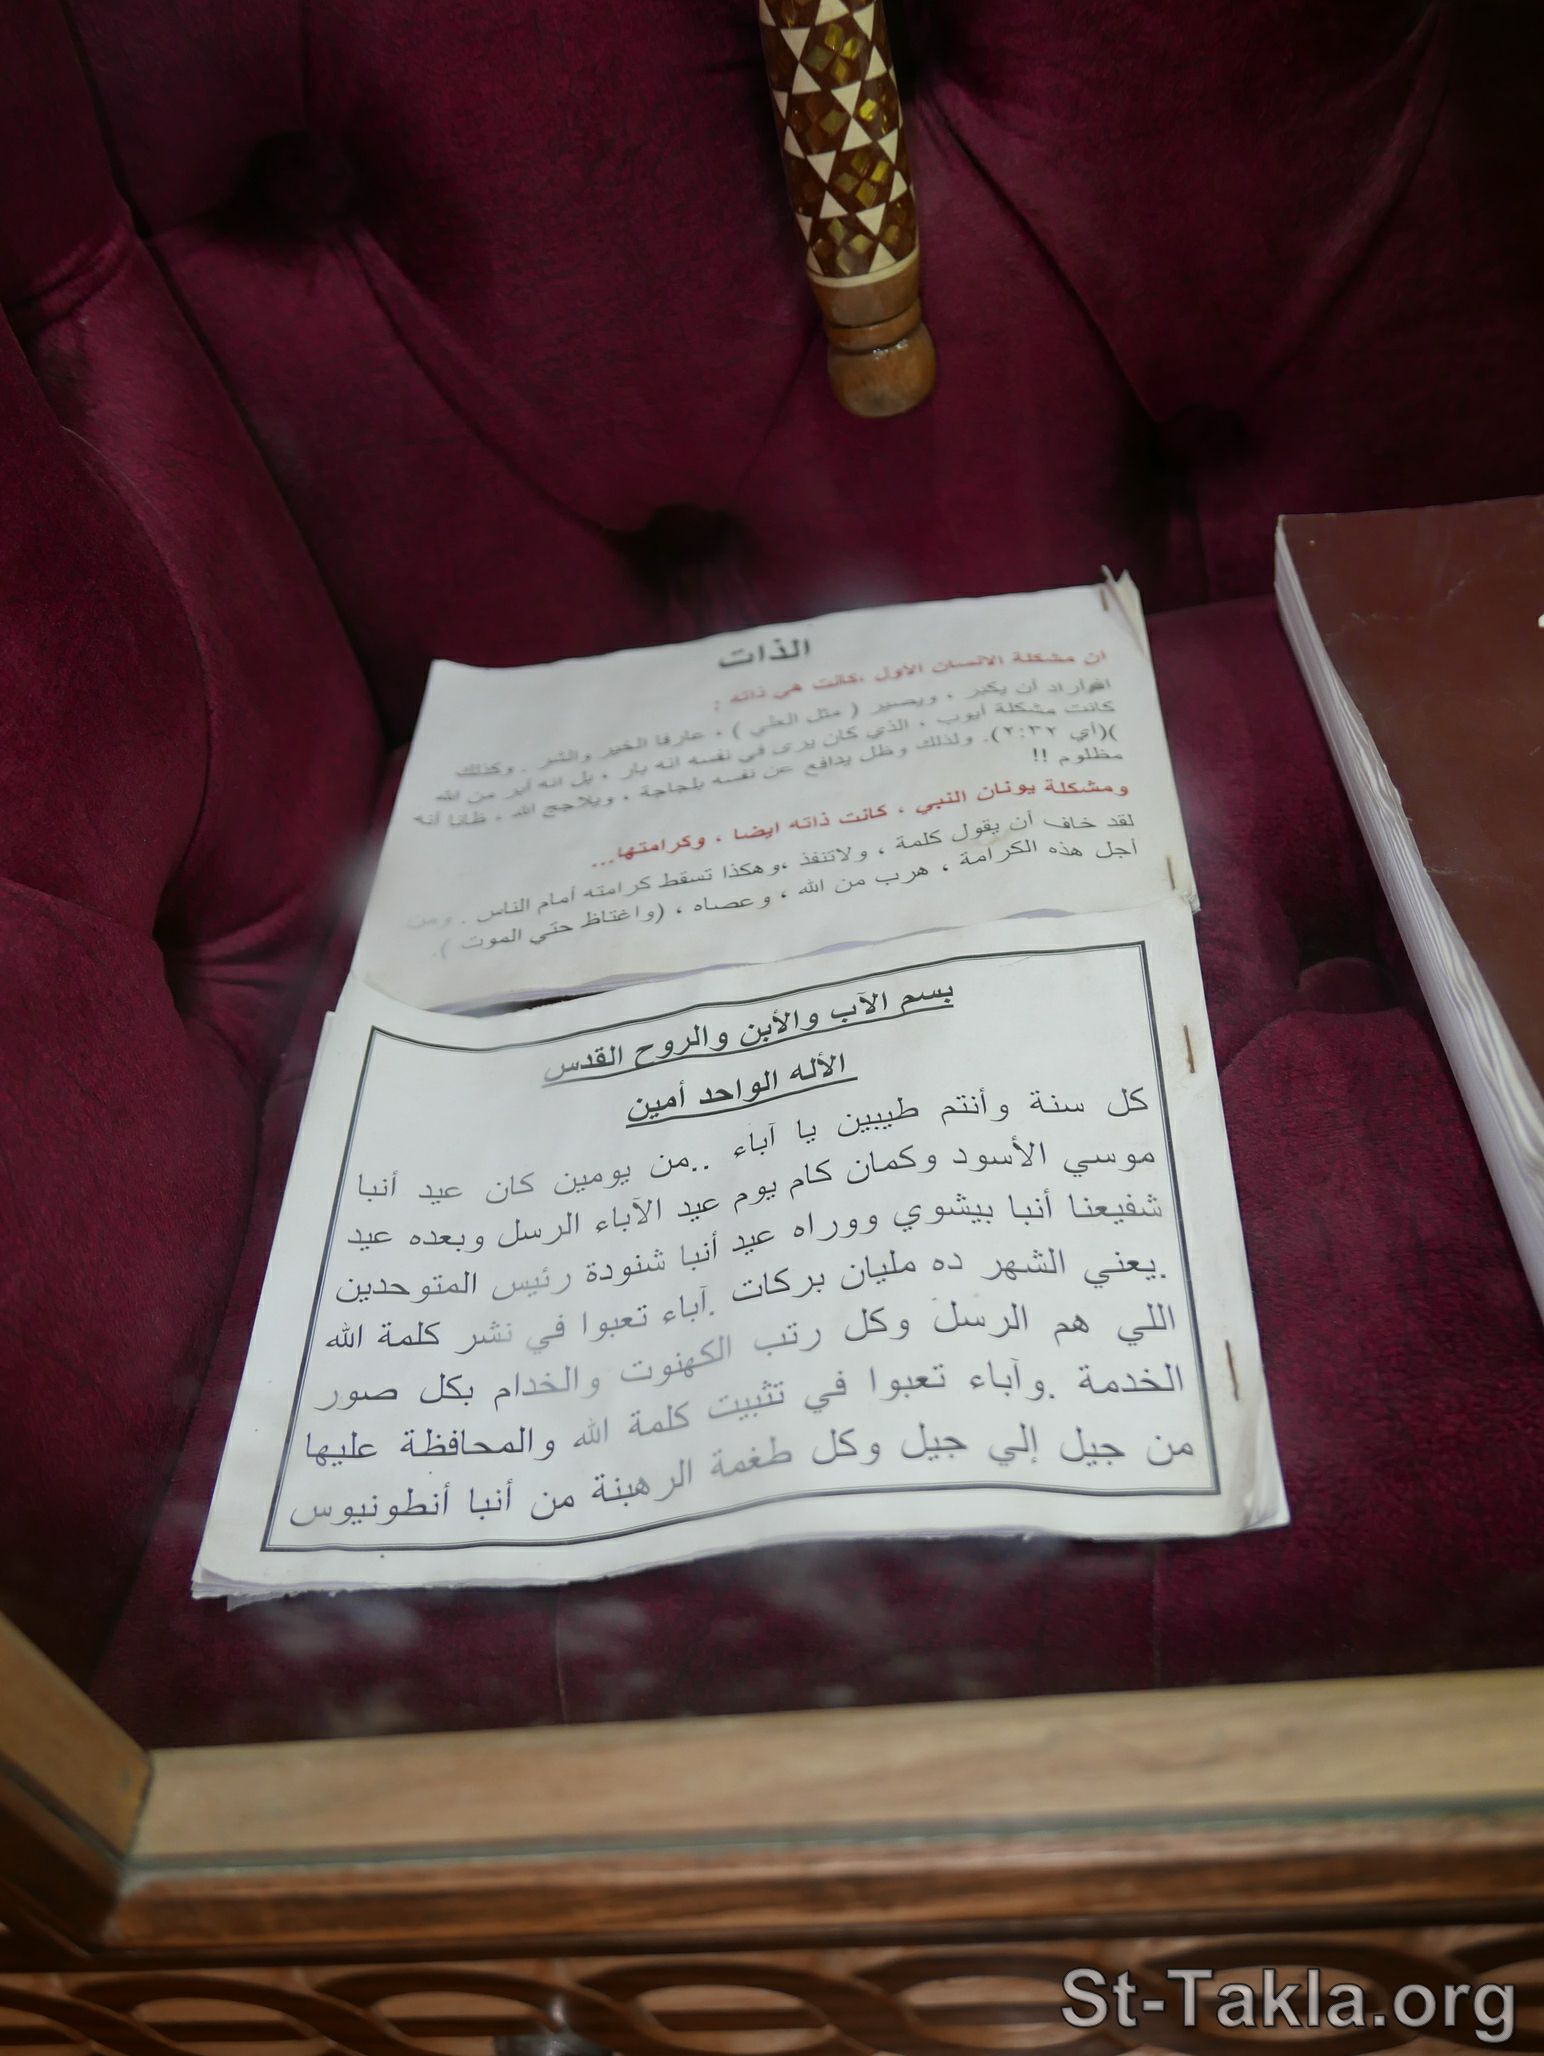 الذات
ان مشكلة الانسان الأول ،كانت هي ذاته :
اراد أن يكبر ، ويصير ( مثل العلي ) ، عارفا الخير والشر . وكذلك
كانت مشكلة أيوب ، الذي كان يرى في نفسه انه بار ، بل انه أبر من الله
)(أي ٣٢:٢). ولذلك وظل يدافع عن نفسه بلجاجة ، ويلاجج الله ، ظانا أنه
مظلوم !!
ومشكلة يونان النبي ، كانت ذاته ايضا ، وكرامتها...
لقد خاف أن يقول كلمة ، ولاتنفذ ،وهكذا تسقط كرامته أمام الناس . ومن
أجل هذه الكرامة ، هرب من الله ، وعصاه ، (واغتاظ حتي الموت ).
بسم الآب والأبن والروح القدس
الأله الواحد أمين
كل سنة وأنتم طيبين يا آباء ..من يومين كان عيد أنبا
موسي الأسود وكمان كام يوم عيد الآباء الرسل وبعده عيد
شفيعنا أنبا بيشوي ووراه عيد أنبا شنودة رئيس المتوحدين
.يعني الشهر ده مليان بركات .آباء تعبوا في نشر كلمة الله
اللي هم الرسل وكل رتب الكهنوت والخدام بكل صور
الخدمة .وآباء تعبوا في تثبيت كلمة الله والمحافظة عليها
من جيل إلي جيل وكل طغمة الرهبنة من أنبا أنطونيوس
St-Takla.org